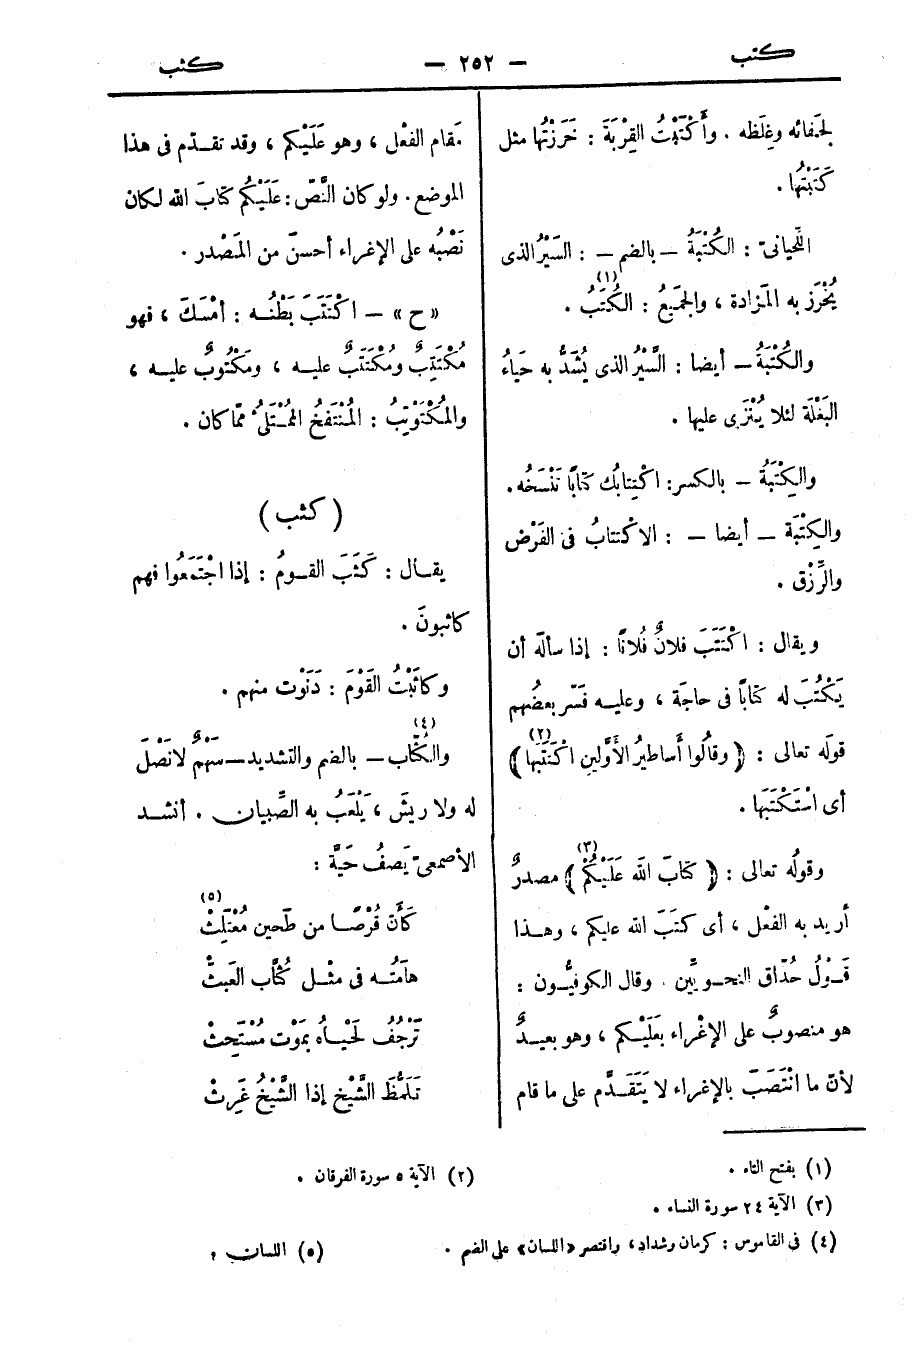 كتب — ٢٥٢ — كثب
لجَفائه وغِلَظه . وأَكْتَبْتُ القِرْبَةَ : خَرَزْتُها مثل
كَتَبْتُها .
اللِّحيانىّ : الكُتْبَةُ – بالضم – : السَّيْرُ الذى
يُخْرَز به المَزادة ، والجَميعُ : الكُتَبُ (١) .
والكُتْبَةُ – أيضا : السَّيْرُ الذى يُشَدُّ به حَياءُ
البَغْلَة لئلا يُنْزَى عليها .
والكِتْبَةُ – بالكسر : اكْتِتابُك كتابًا تَنْسَخُه .
والكِتْبَة – أيضا – : الاكْتتابُ فى الفَرْض
والرِّزْق .
ويقال : اكْتَتَبَ فلانٌ فُلانًا : إذا سألَه أن
يَكْتُبَ له كتابًا فى حاجَة ، وعليه فَسَّر بعضُهم
قولَه تعالى : ﴿ وقالُوا أساطيرُ الأَوَّلينِ اكْتَتَبَها ﴾ (٢)
أى اسْتَكْتَبَها .
وقولُه تعالى : ﴿ كتابَ الله عَلَيْكُمْ ﴾ (٣) مصدرٌ
أريد به الفْعل ، أى كتَبَ الله عليكم ، وهذا
قَوْلُ حُذّاق النحويّين . وقال الكوفيُّون :
هو منصوبٌ على الإغْراء بعَلَيْكم ، وهو بعيدٌ
لأنّ ما انْتَصَبَ بالإغراء لا يَتَقَدَّم على ما قام
مَقام الفعْل ، وهو عَلَيْكم ، وقد تقدّم فى هذا
الموضع . ولو كان النَّصّ : عَلَيْكُم كتابَ الله لكان
نَصْبُه على الإغراء أحسنَ من المَصْدر .
« ح » – اكْتَتَبَ بَطْنُه : أمْسَكَ ، فهو
مُكْتَتِبٌ ومُكْتَتَبٌ عليه ، ومَكْتُوبٌ عليه ،
والمُكْتَوْتِبُ : المُنْتَفخُ المُمْتَلئُ ممّا كان .
( كثب )
يقال : كَثَبَ القومُ : إذا اجْتَمَعُوا فهم
كاثبونَ .
وكاثَبْتُ القَوْمَ : دَنَوْت منهم .
والكُثّاب (٤) – بالضم والتشديد – سَهْمٌ لانَصْلَ
له ولا ريشَ ، يَلْعَبُ به الصِّبيان . أنشد
الأصمعىّ يَصفُ حَيَّة :
كَأَنّ قُرْصًا من طَحين مُعْتَلِثْ (٥)
هامَتُه فى مثْل كُثّاب العَبثْ
تَرْجُفُ لَحْياهُ بمَوْت مُسْتَحِثْ
تَلَمُّظَ الشَّيْخ إذا الشَّيْخُ غَرِثْ
(١) بفتح التاء .
(٢) الآية ٥ سورة الفرقان .
(٣) الآية ٢٤ سورة النساء .
(٤) فى القاموس : كرمان وشداد ، واقتصر «اللسان» على الضم .
(٥) اللسان :